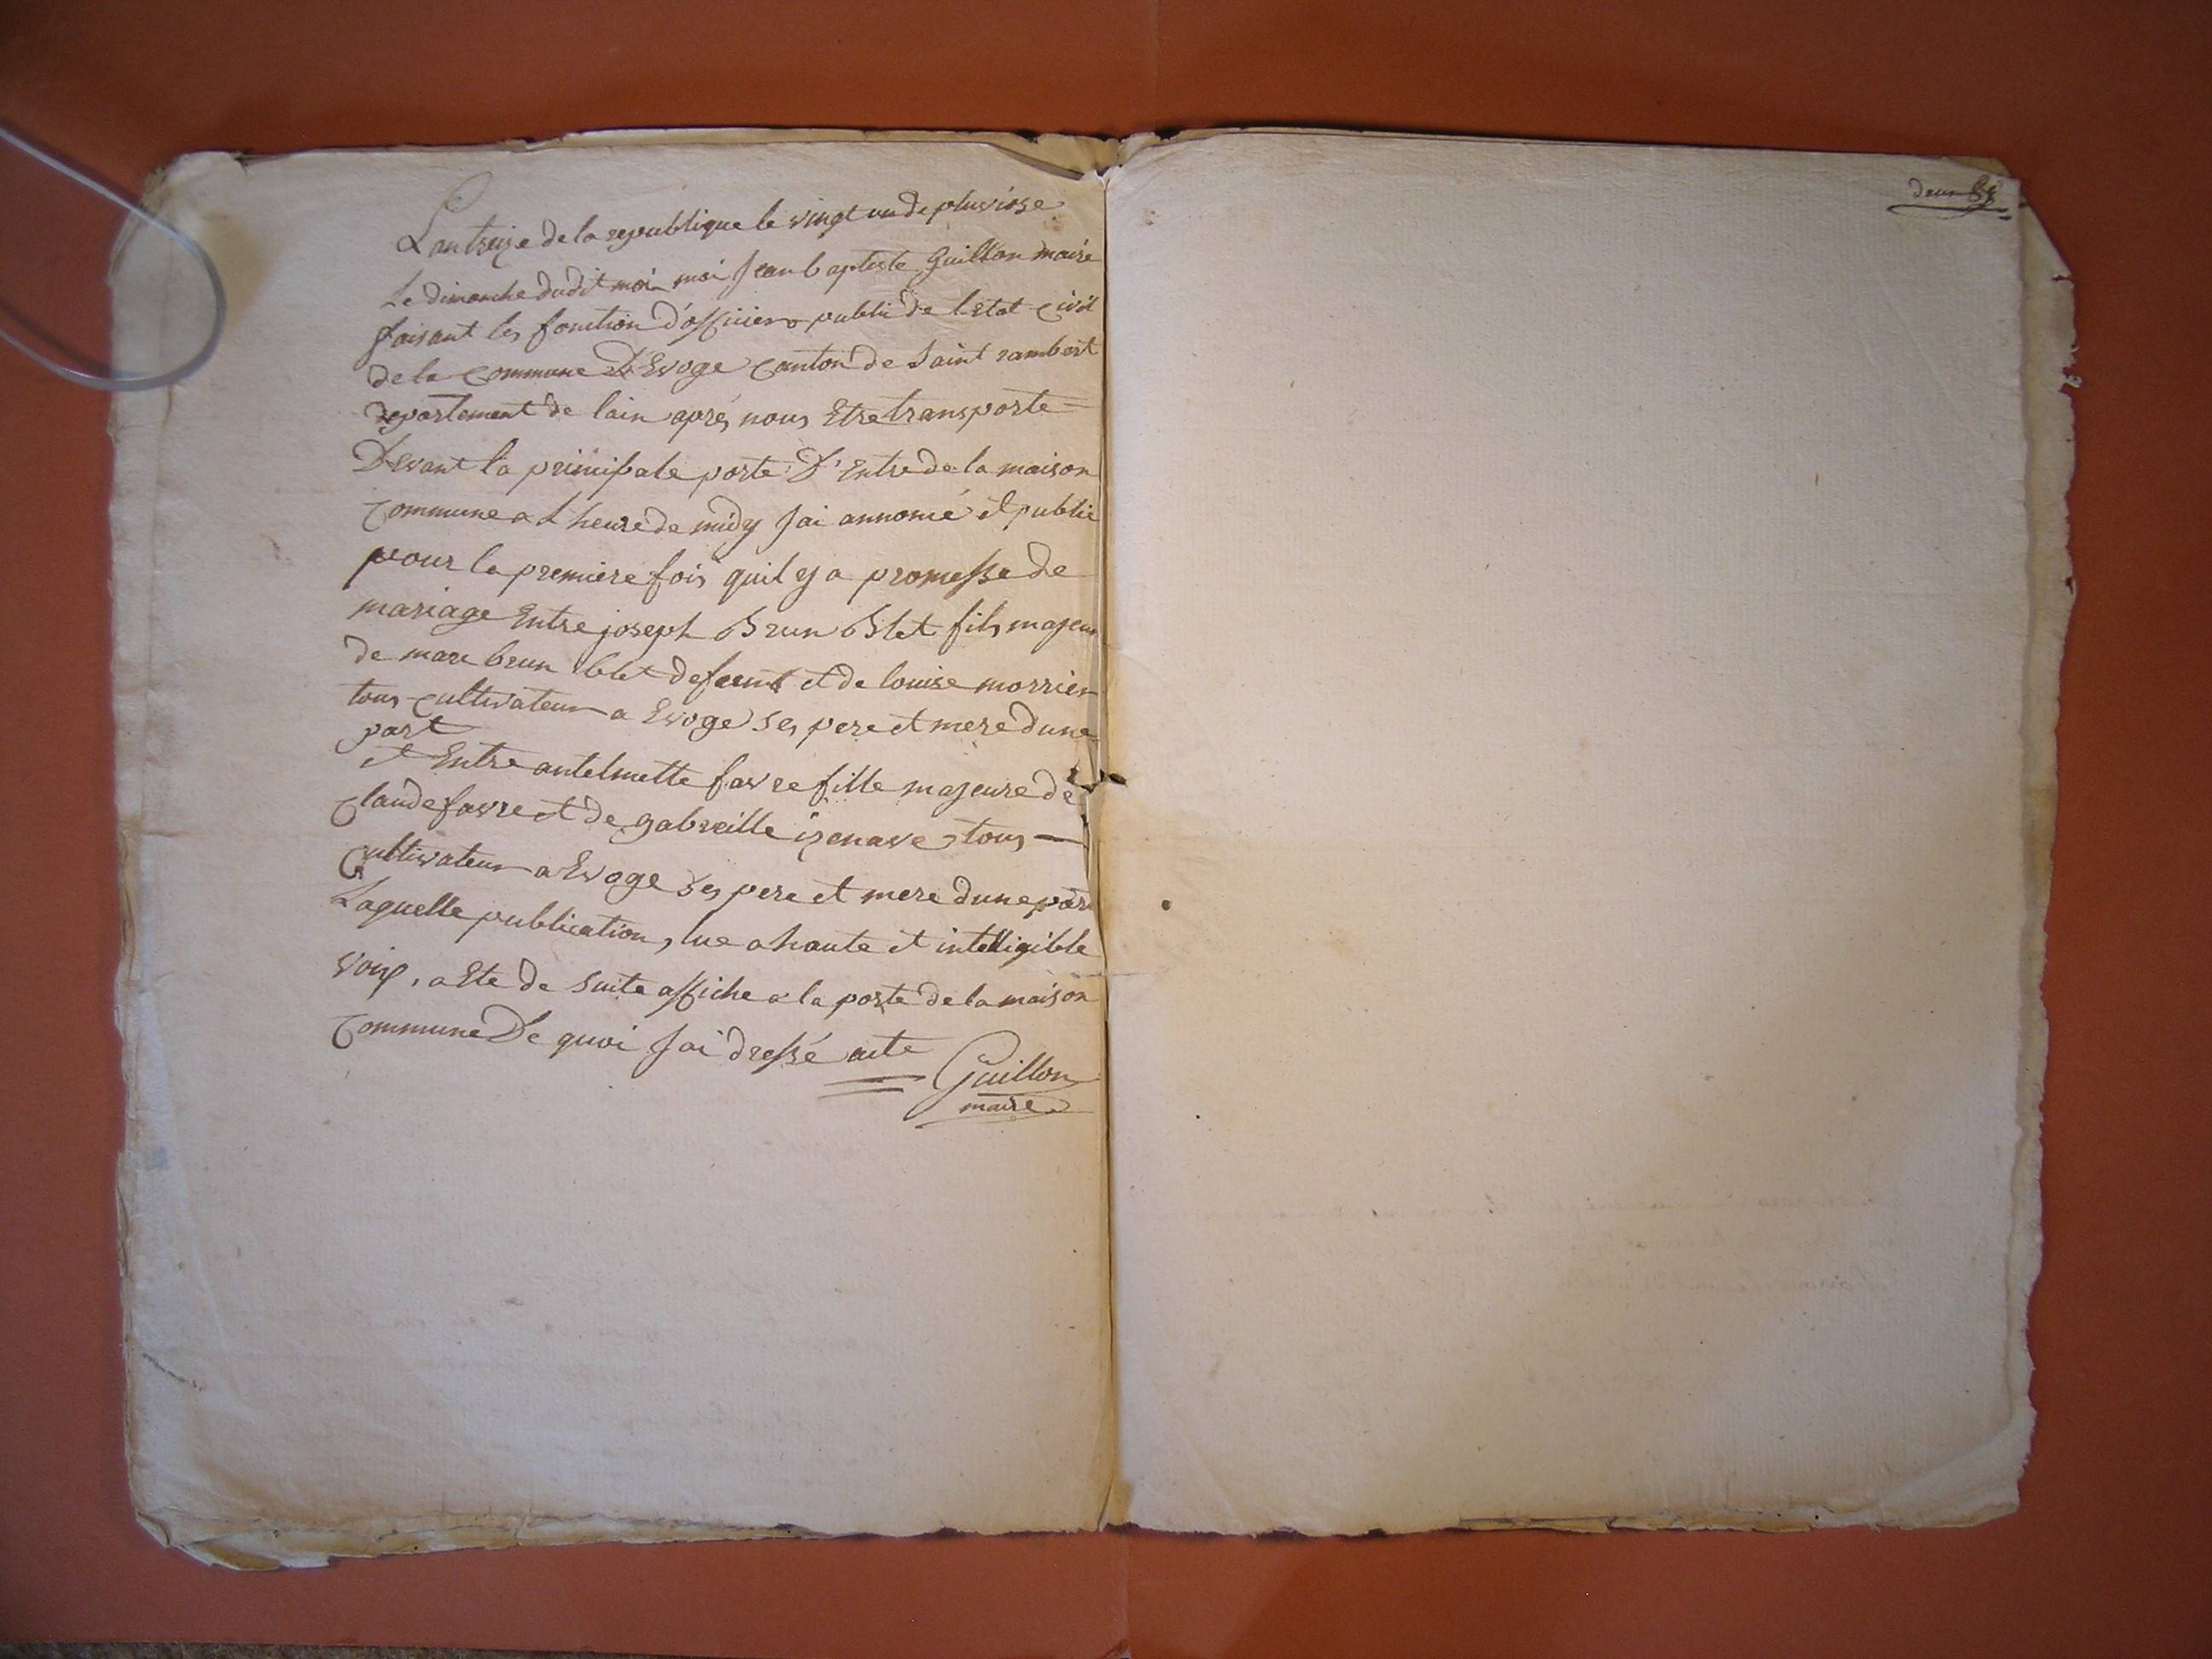 Lan treize de la republique le vingt un de pluviose
Le dimanche dudit moi moi Jean baptiste Guillon maire
faisant les fonction d'officier public de letat civil
de la commune D'Evoge canton de Saint rambert
departement de lain aprés nous Etre transporte
Devant la principale porte D'Entre de la maison
commune a L heure de midy Jai annoncé et publie
pour la premiere fois quil y a promesse de
mariage Entre joseph Brun Blet fils majeur
de marc brun blet defunt et de louise morrier
tous cultivateur a Evoge ses pere et mere dune
part
et Entre antelmette favre fille majeure de
Claude favre et de gabreille izenave tous
Cultivateur a Evoge ses pere et mere dune part
Laquelle publication, lue a haute et intelligible
voix, a Ete de suite affiche a la porte de la maison
commune De quoi Jai dressé acte
Guillon
maire
deux